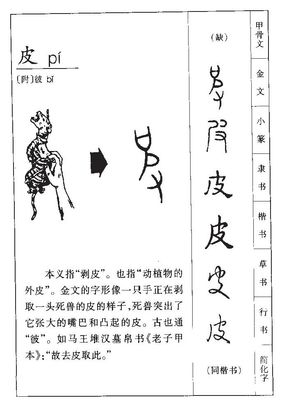 皮 pí
〔附〕彼 bǐ
本义指“剥皮”。也指“动植物的
外皮”。金文的字形像一只手正在剥
取一头死兽的皮的样子,死兽突出了
它张大的嘴巴和凸起的皮。古也通
“彼”。如马王堆汉墓帛书《老子甲
本》:“故去皮取此。”
(缺)
皮
皮
皮
皮
皮
皮
(同楷书)
甲骨文
金文
小篆
隶书
楷书
草书
行书
简化字